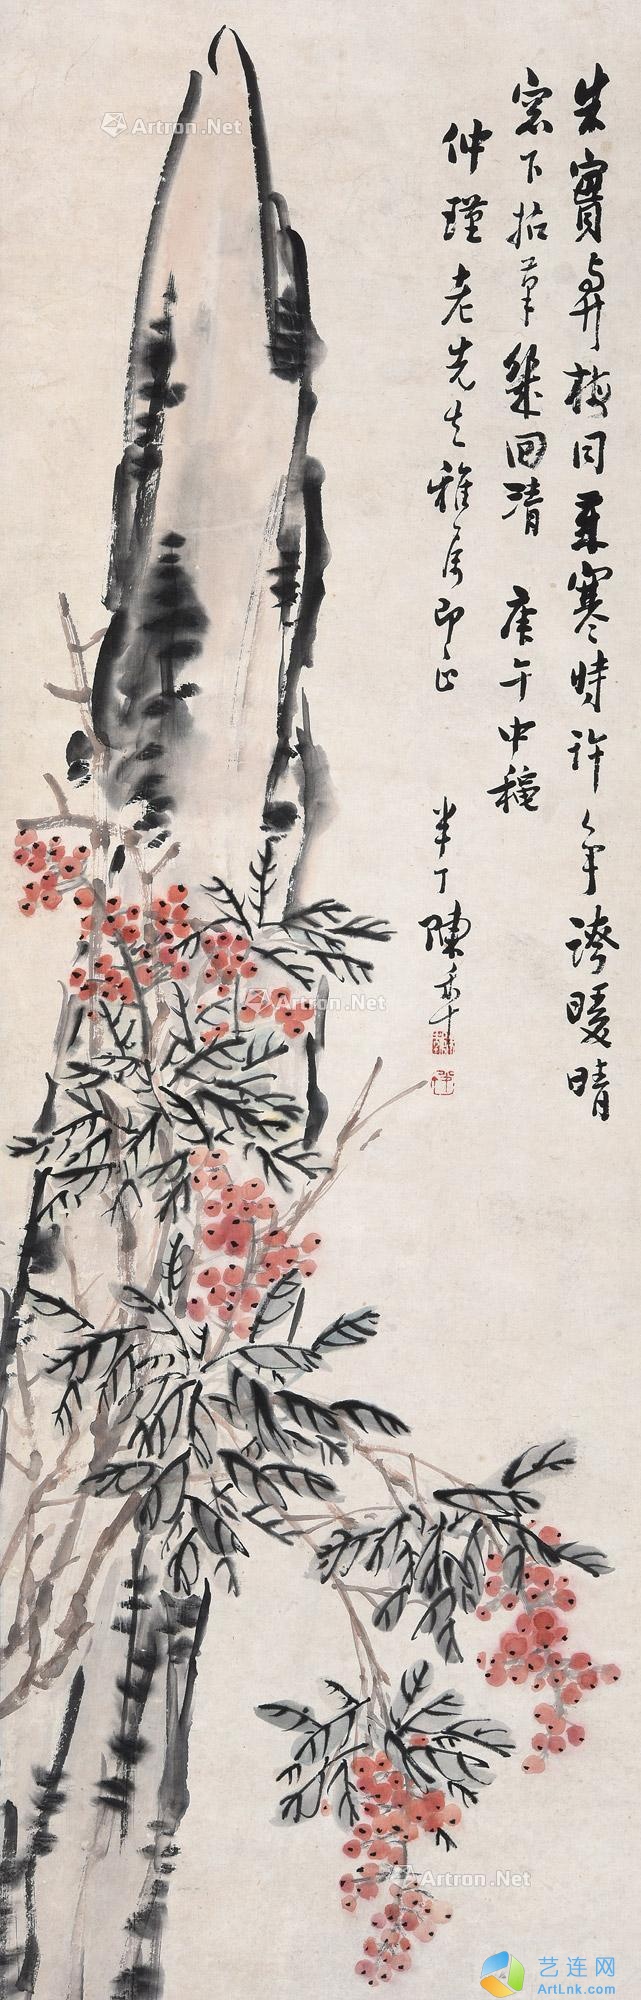 朱實與梅同耐寒時許年說暖晴
窓下拈筆几回清 庚午中穐
仲瑾老先生雅屬即正
半丁陳年
Artron.Net
Artron.Net
Artron.Net
艺连网
ArtLnk.com